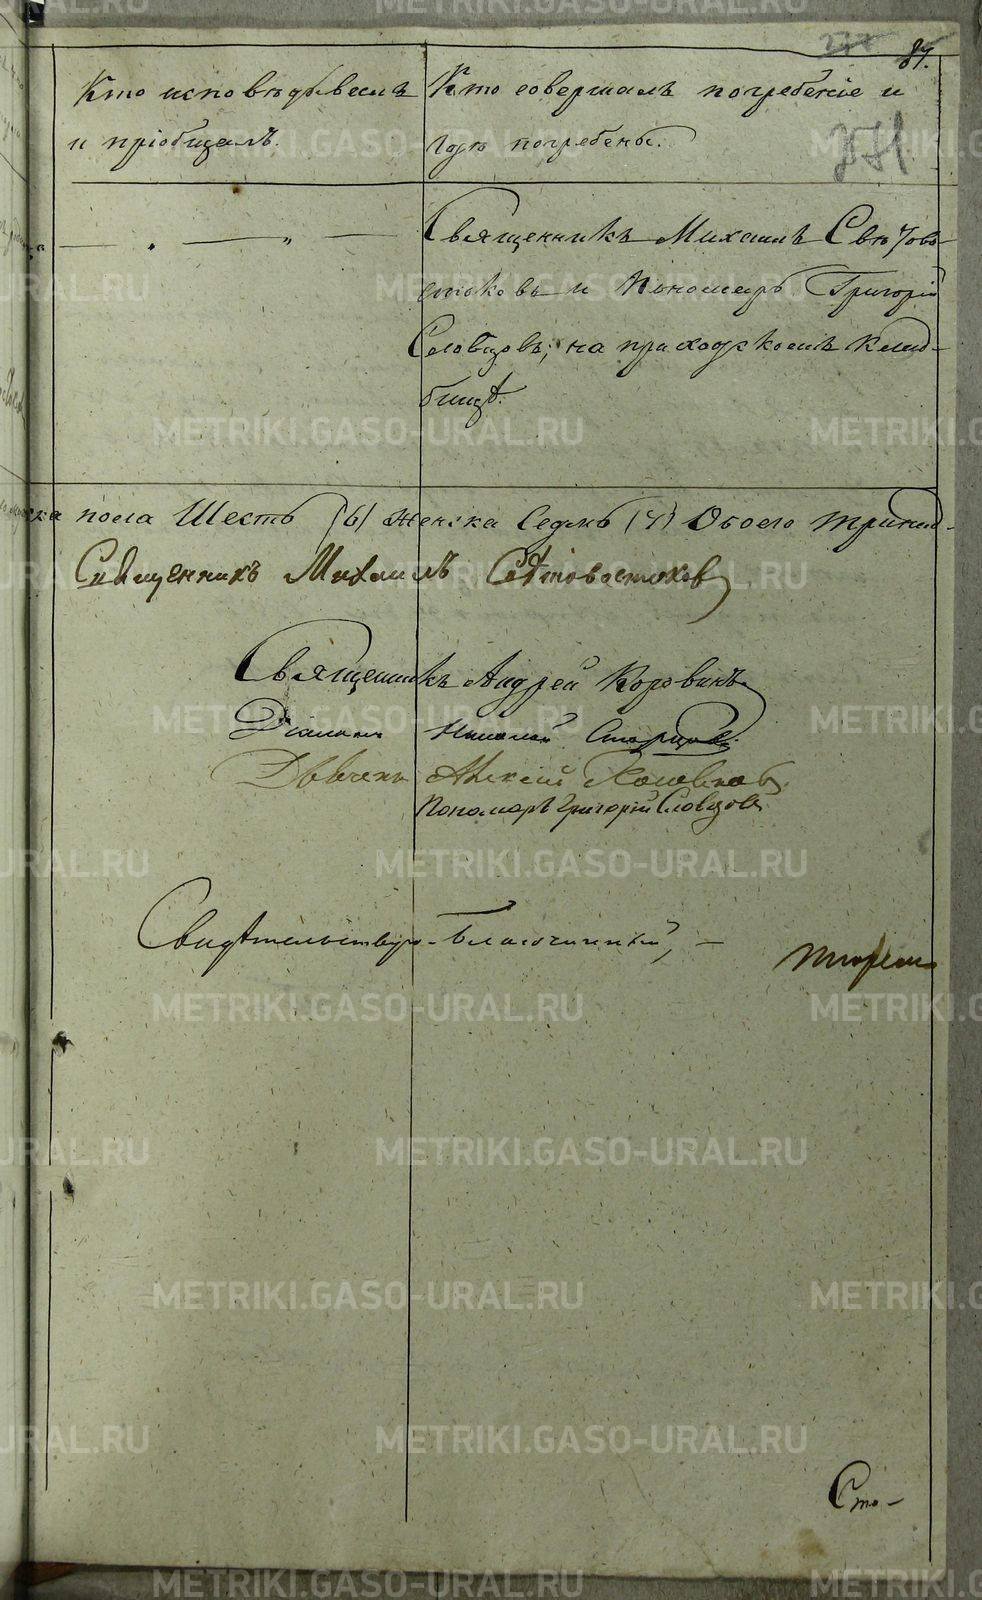 87.
271
Кто исповѣдывалъ
и пріобщалъ.
Кто совершалъ погребеніе и
гдѣ погребены.
Священникъ Михаилъ Свѣтово-
стоковъ и Пономарь Григорій
Словцовъ; на приходскомъ клад-
бищѣ.
пола Шесть (6) Женска Седмь (7) Обоего тринад-
Священникъ Михаилъ Свѣтовостоковъ
Священникъ Андрей Коровинъ
Діаконъ Николай
Дьячекъ Алексій
Пономарь Григорій Словцовъ
Свидѣтельствую Благочинный,
Сто-
METRIKI.GASO-URAL.RU